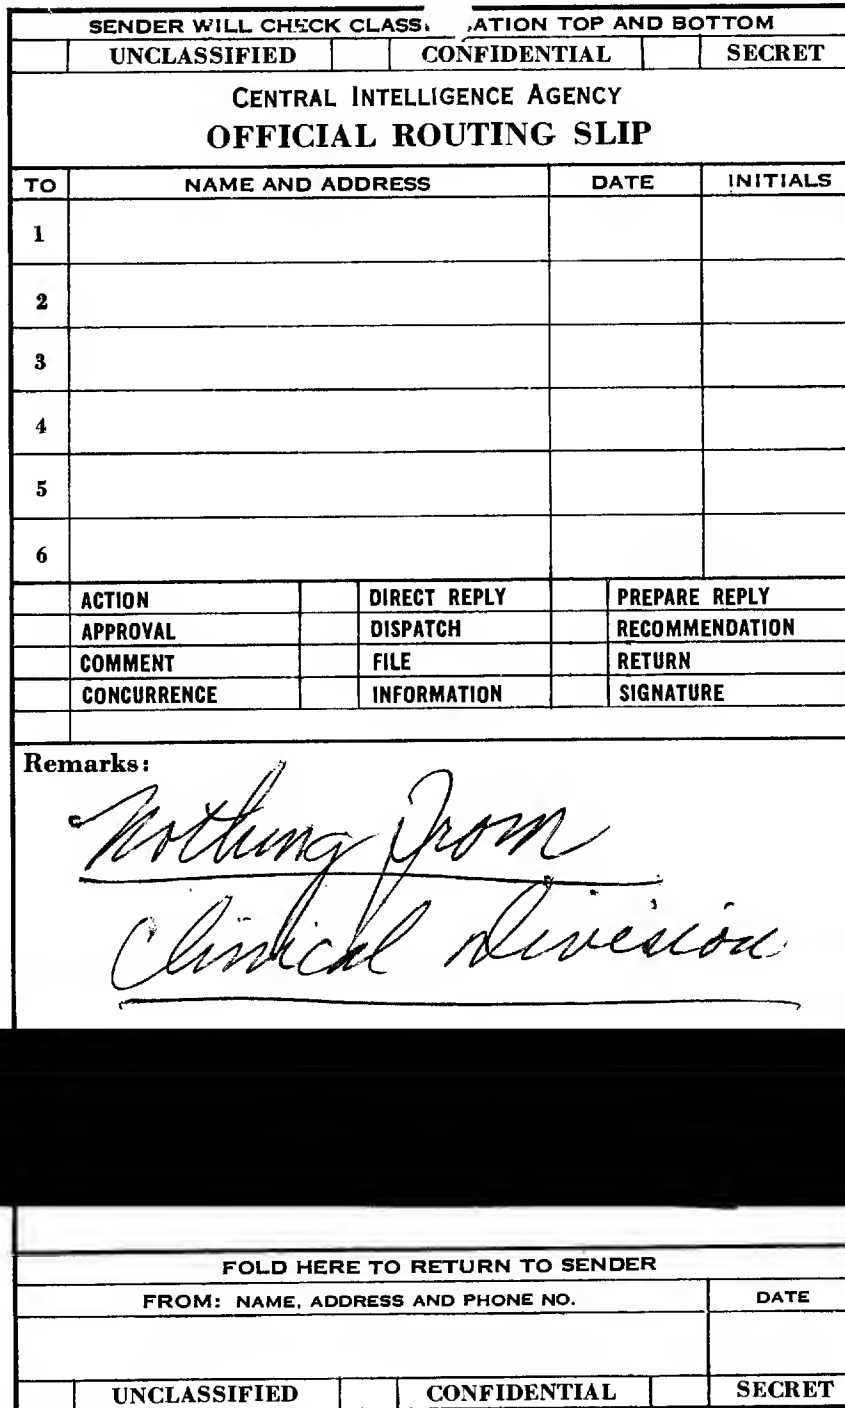 SENDER WILL CHECK CLASS ATION TOP AND BOTTOM
UNCLASSIFIED CONFIDENTIAL SECRET
CENTRAL INTELLIGENCE AGENCY
OFFICIAL ROUTING SLIP
TO NAME AND ADDRESS DATE INITIALS
1
2
3
4
5
6
ACTION DIRECT REPLY PREPARE REPLY
APPROVAL DISPATCH RECOMMENDATION
COMMENT FILE RETURN
CONCURRENCE INFORMATION SIGNATURE
Remarks:
Nothing from
Clinical Division
FOLD HERE TO RETURN TO SENDER
FROM: NAME, ADDRESS AND PHONE NO. DATE
UNCLASSIFIED CONFIDENTIAL SECRET